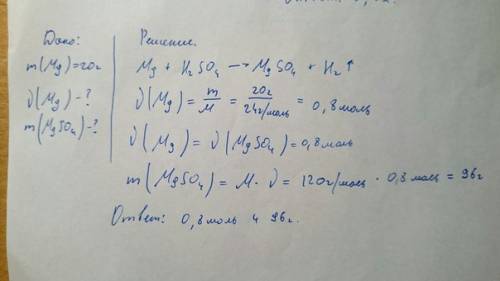 Дано:
m(Mg)=20г
ν(Mg)-?
m(MgSO₄)-?
Решение.
Mg + H₂SO₄ → MgSO₄ + H₂↑
ν(Mg) = m/M = 20г/24г/моль = 0,8моль
ν(Mg) = ν(MgSO₄)=0,8моль
m(MgSO₄) = M · ν = 120г/моль · 0,8 моль = 96г
Ответ: 0,8моль и 96г.